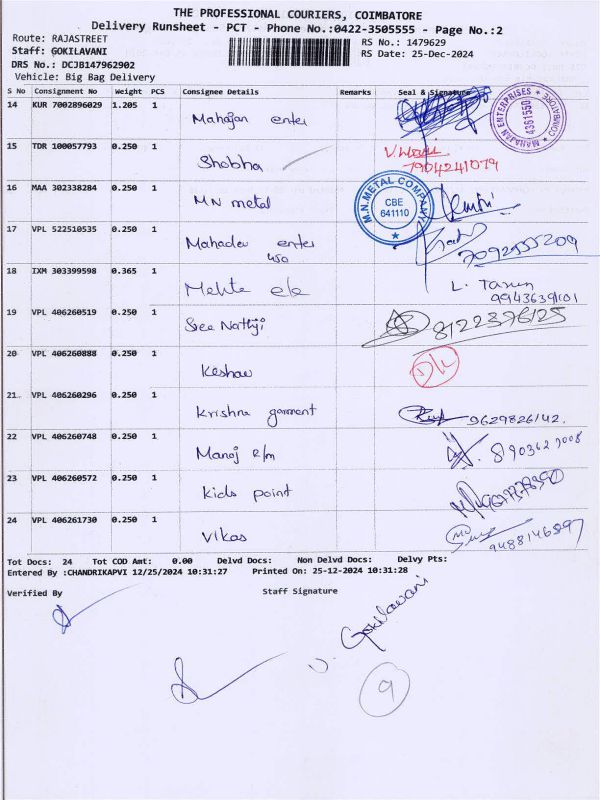 THE PROFESSIONAL COURIERS, COIMBATORE
Delivery Runsheet - PCT - Phone No.:0422-3505555 - Page No.:2
Route: RAJASTREET
RS No.: 1479629
Staff: GOKILAVANI
RS Date: 25-Dec-2024
DRS No.: DCJB147962902
Vehicle: Big Bag Delivery
S No Consignment No Weight PCS Consignee Details Remarks Seal & Signature
14 KUR 7002896029 1.205 1 Mahajan enter
MAHAJAN ENTERPRISES ★ COIMBATORE ★ 4361550
15 TDR 100057793 0.250 1 Shobha
7904241079
16 MAA 302338284 0.250 1 M N metal
M.N.METAL COMPANY CBE 641110 ★
17 VPL 522510535 0.250 1 Mahadev enter
450
7092555209
18 IXM 303399598 0.365 1 Mehta ele
L. Tarun
9943639101
19 VPL 406260519 0.250 1 Sree Nathji 8122376125
20 VPL 406260888 0.250 1 Keshav D/L
21 VPL 406260296 0.250 1 Krishna garment 9629826142.
22 VPL 406260748 0.250 1 Manoj R/m 8903629008
23 VPL 406260572 0.250 1 Kids point
24 VPL 406261730 0.250 1 Vikas
9488146897
Tot Docs: 24 Tot COD Amt: 0.00 Delvd Docs: Non Delvd Docs: Delvy Pts:
Entered By :CHANDRIKAPVI 12/25/2024 10:31:27 Printed On: 25-12-2024 10:31:28
Verified By Staff Signature
Gokilavani
9